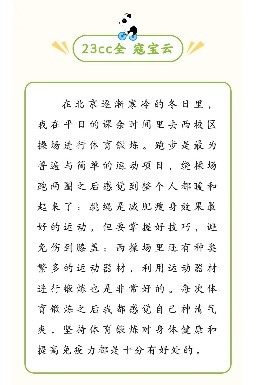 23cc全 寇宝云
在北京逐渐寒冷的冬日里，
我在平日的课余时间里去西校区
操场进行体育锻炼。跑步是最为
普遍与简单的运动项目，绕操场
跑两圈之后感觉到整个人都暖和
起来了；跳绳是减肥瘦身效果最
好的运动，但要掌握好技巧，避
免伤到膝盖；西操场里还有种类
繁多的运动器材，利用运动器材
进行锻炼也是非常好的。每次体
育锻炼之后我都感觉自己神清气
爽。坚持体育锻炼对身体健康和
提高免疫力都是十分有好处的。